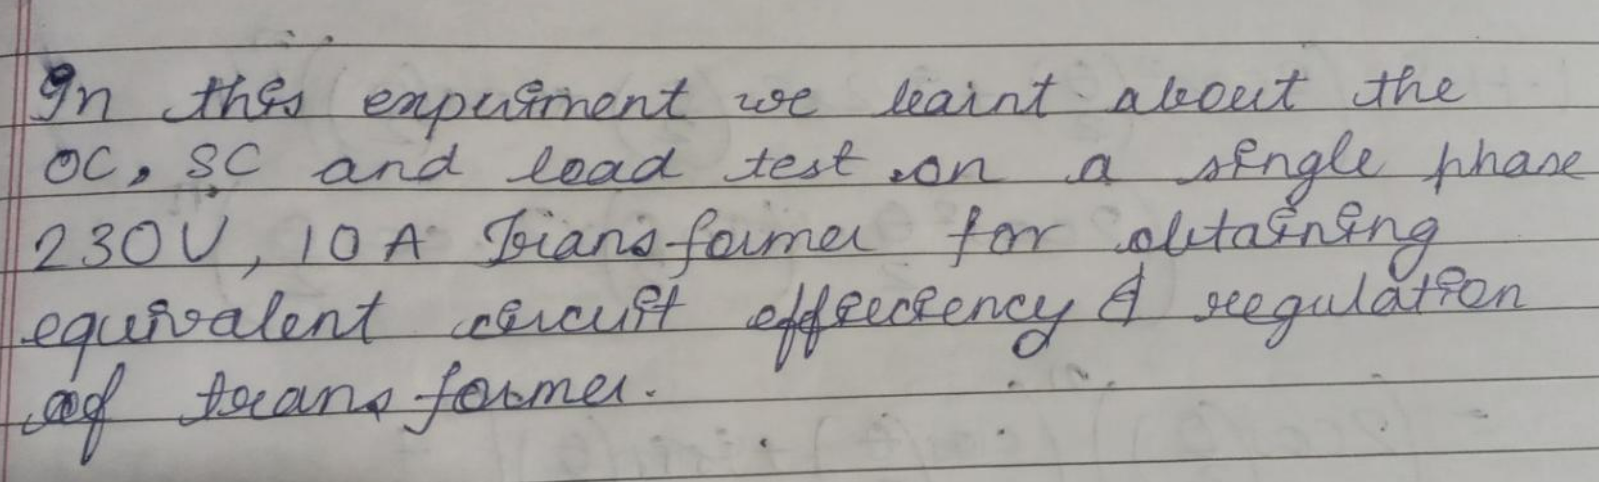 In this experiment we learnt about the
OC, SC and load test on a single phase
230V, 10A Transformer for obtaining
equivalent circuit efficiency & regulation
of transformer.